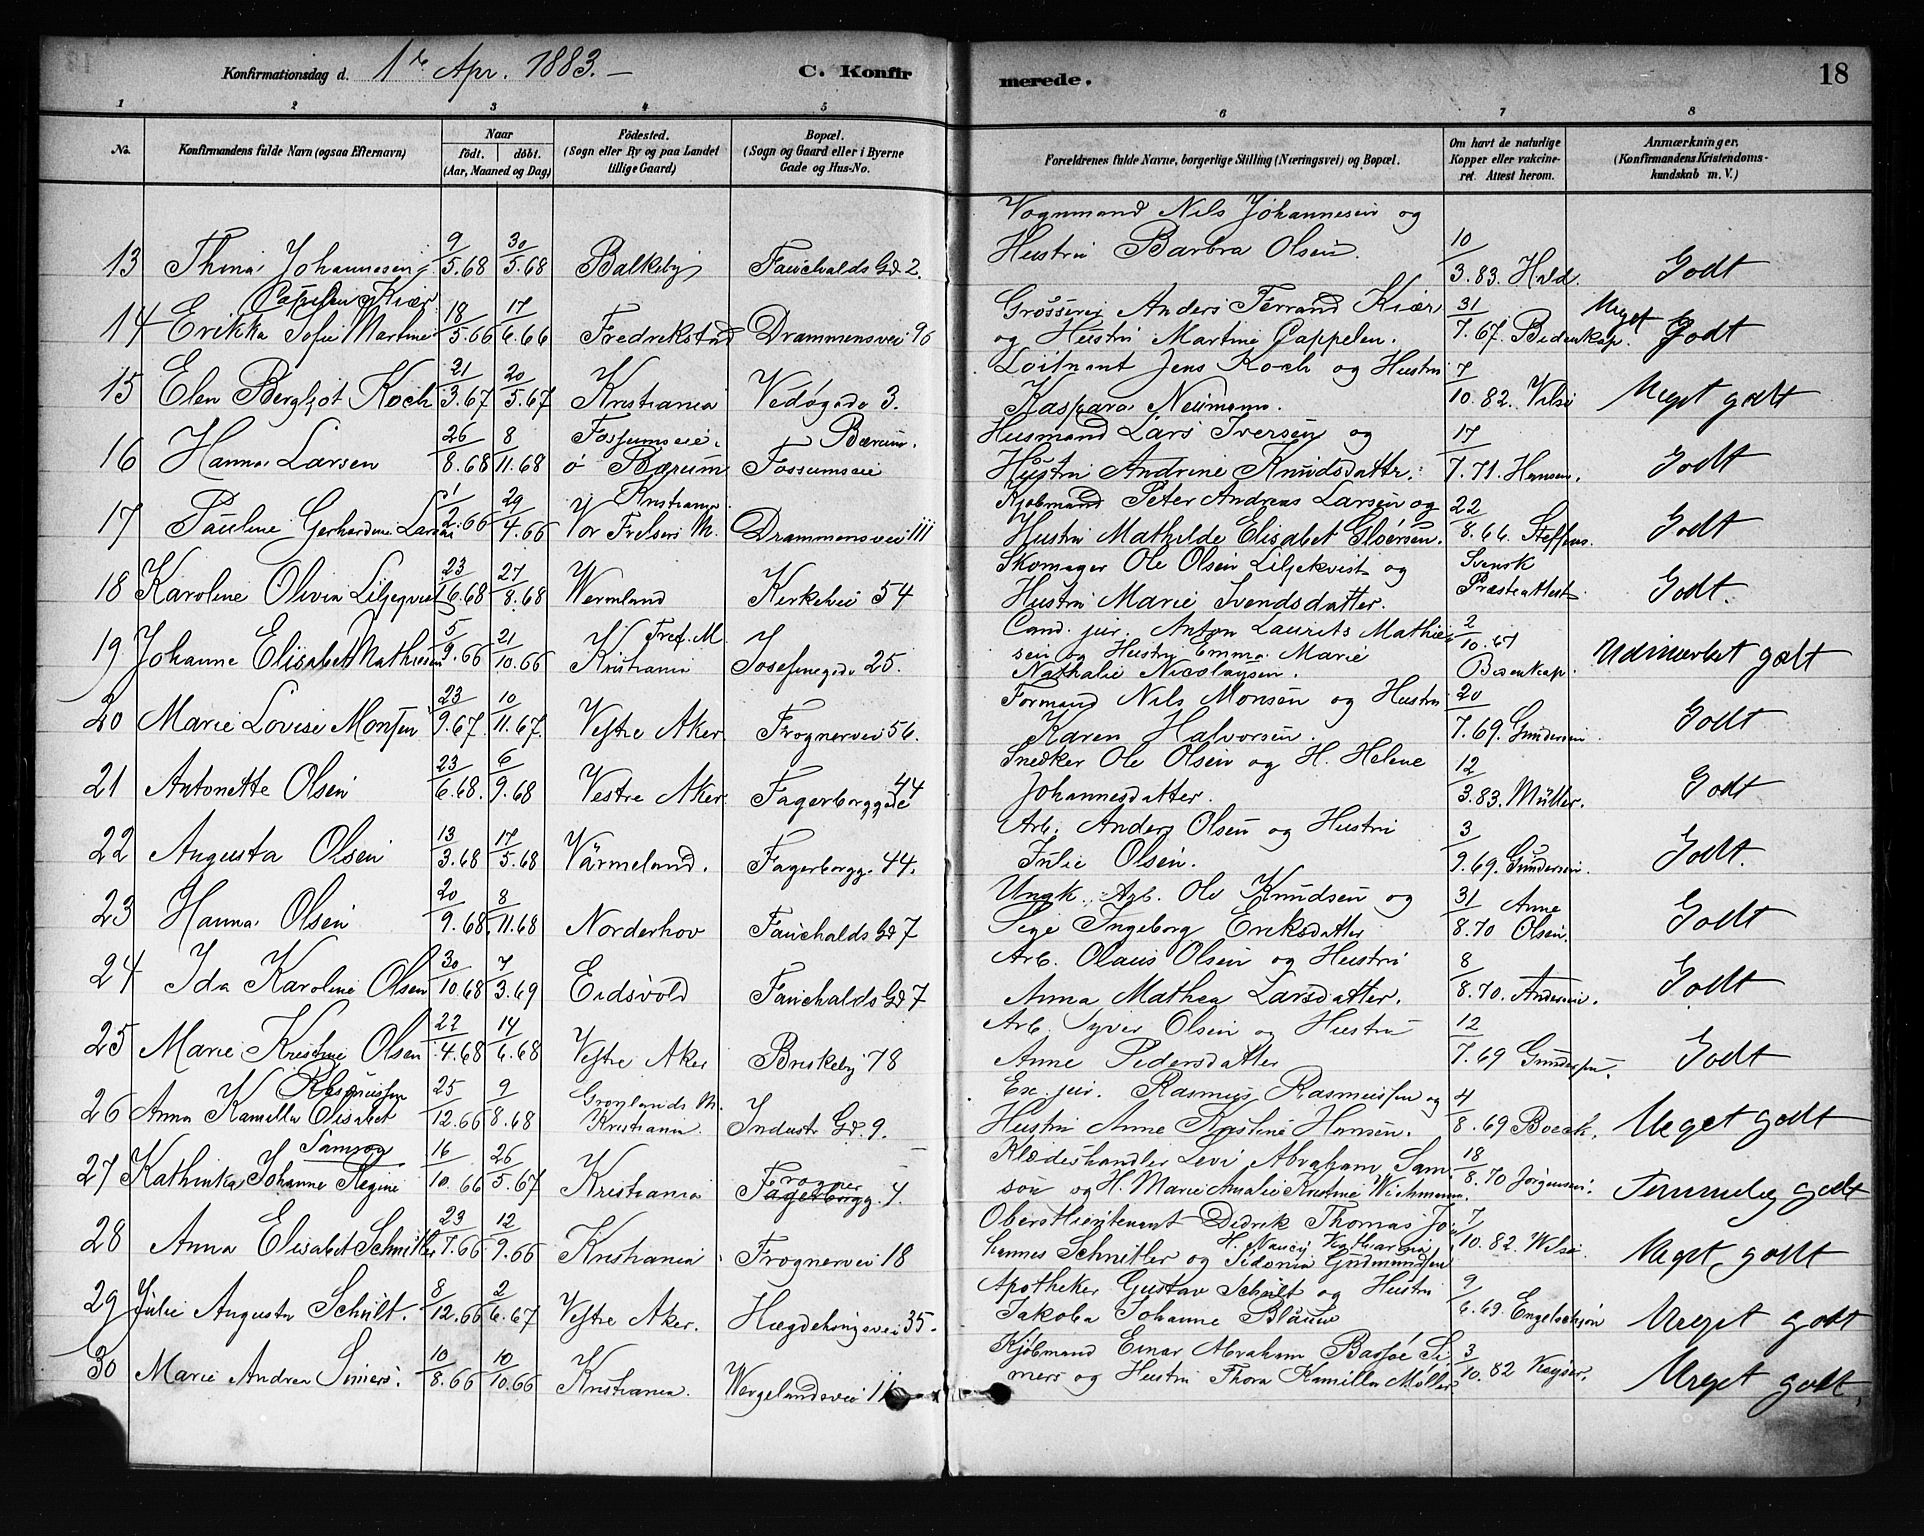 Konfirmationsdag d. 1ste Apr. 1883. —
C. Konfirmerede.
18
1 2 3 4 5 6 7 8
No.
Konfirmandens fulde Navn (ogsaa Efternavn)
Naar
født. døbt.
(Aar, Maaned og Dag)
Fødested.
(Sogn eller By og paa Landet
tillige Gaard)
Bopæl.
(Sogn og Gaard eller i Byerne
Gade og Hus-No.
Forældrenes fulde Navne, borgerlige Stilling (Næringsvei) og Bopæl.
Om havt de naturlige
Kopper eller vakcine-
ret. Attest herom.
Anmærkninger.
(Konfirmandens Kristendoms-
kundskab m. V.)
13 Thina Johannesen 9/5.68 30/5.68 Balkeby Fauchalds Gd 2.
Vognmand Nils Johannesen og
Hustru Barbra Olsen. 10/3.83. Hald. Godt
Cappelen Kiær
14 Erikka Sofie Martine 18/5.66 17/6.66 Fredrikstad Drammensvei 96
Grosserer Anders Ferrand Kiær
og Hustru Martine Cappelen. 31/7.67. Bidenkap. Meget Godt
15 Elen Bergljot Koch 21/3.67 20/5.67 Kristiania Vedøgade 3.
Løitnant Jens Koch og Hustru
Kaspara Neumann. 7/10.82. Vilse Meget godt
16 Hanna Larsen 26/8.68 8/11.68 Fossumseie, ø Bærum Bærum. Fossumseie
Husmand Lars Iversen og
Hustru Andrine Knudsdatter. 17/7.71. Hansen. Godt
17 Pauline Gerhardine Larsen 1/2.66 29/4.66 Kristiania Vor Frelsers M. Drammensvei 111
Kjøbmand Peter Andreas Larsen og
Hustru Mathilde Elisabet Sloërsen. 22/8.66. Steffens. Godt
18 Karoline Olivia Liljeqvist 23/6.68 27/8.68 Wermland Kirkevei 54
Skomager Ole Olsen Liljekvist og
Hustru Marie Svendsdatter. Svensk Præsteattest Godt.
19 Johanne Elisabet Mathiesen 5/9.66 21/10.66 V. Fref. M. Kristiania Josefinegade 25.
Cand. jur. Anton Laurits Mathie-
sen og Hustru Emma Marie
Nathalie Nicolaysen. 2/10.67 Bidenkap. Udmærket godt
20 Marie Lovise Monsen 23/9.67. 10/11.67. Vestre Aker. Frognervei 56.
Formand Nils Monsen og Hustru
Karen Halvorsen. 20/7.69. Gundersen Godt
21 Antonette Olsen 23/6.68. 6/9.68 Vestre Aker. Fagerborggade 44
Snedker Ole Olsen og H. Helene
Johannesdatter. 12/3.83. Müller. Godt
22 Augusta Olsen 13/3.68 17/5.68 Värmeland. Fagerborgg. 44.
Arb. Anders Olsen og Hustru
Julie Olsen. 3/9.69. Gundersen. Godt.
23 Hanna Olsen 20/9.68. 8/11.68 Norderhov Fauchalds Gd 7
Ungk. Arb. Ole Knudsen og
Pige Ingeborg Eriksdatter 31/8.70 Anne Olsen. Godt
24 Ida Karoline Olsen 30/10.68 7/3.69 Eidsvold Fauchalds Gd 7
Arb. Olaus Olsen og Hustru
Anna Mathea Larsdatter. 8/8.70. Andersen. Godt
25 Marie Kristine Olsen 22/4.68 14/6.68 Vestre Aker Briskeby 78
Arb. Syver Olsen og Hustru
Anne Pedersdatter 12/7.69 Gundersen. Godt
Rasmussen
26 Anna Kamilla Elisabet 25/12.66 9/8.68 Grønlands M. Kristiania. Industri Gd. 9.
Ex. jur. Rasmus Rasmussen og
Hustru Anne Kristine Hansen. 4/8.69 Boeck. Meget godt
Samson
27 Kathinka Johanne Regine 16/10.66 26/5.67 Kristiania Frogner Fagerborgg. 4.
Klædeshandler Levi Abraham Sam-
son og H. Marie Amalie Kristine Wichmann. 18/8.70 Jørgensen. Temmelig godt
28 Anna Elisabet Schnitler 23/7.66 12/9.66 Kristiania Frognervei 18
Oberstlieutenant Didrik Thomas Jo-
hannes Schnitler og H. Nancy Katharina Sidonia Gudmundsen 7/10.82. Wilse. Meget godt
29 Julie Augusta Schült. 8/12.66 2/6.67 Vestre Aker. Hægdehaugsvei 35.
Apotheker Gustav Schült og Hustru
Jakoba Johanne 9/6.69. Engelschiøn Meget godt
30 Marie Andrea Simers. 10/8.66 10/10.66 Kristiania. Wergelandsvei 11
Kjøbmand Einar Abraham Bassøe Si-
mers og Hustru Thora Kamilla Møller 3/10.82 Kayser. Meget godt.